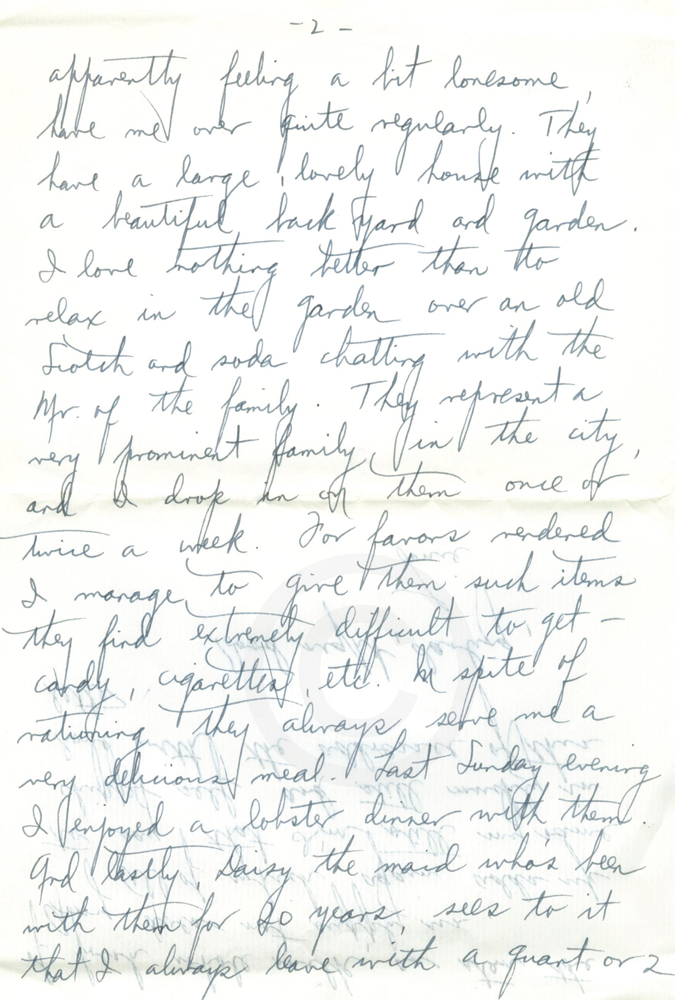 - 2 -
apparently feeling a bit lonesome,
have me over quite regularly. They
have a large, lovely house with
a beautiful back yard and garden.
I love nothing better than to
relax in the garden over an old
Scotch and soda chatting with the
Mr. of the family. They represent a
very prominent family in the city,
and I drop in on them once or
twice a week. For favors rendered
I manage to give them such items
they find extremely difficult to get -
candy, cigarettes, etc. In spite of
rationing they always serve me a
very delicious meal. Last Sunday evening
I enjoyed a lobster dinner with them.
And lastly, Daisy the maid who's been
with them for 20 years, sees to it
that I always leave with a quart or 2